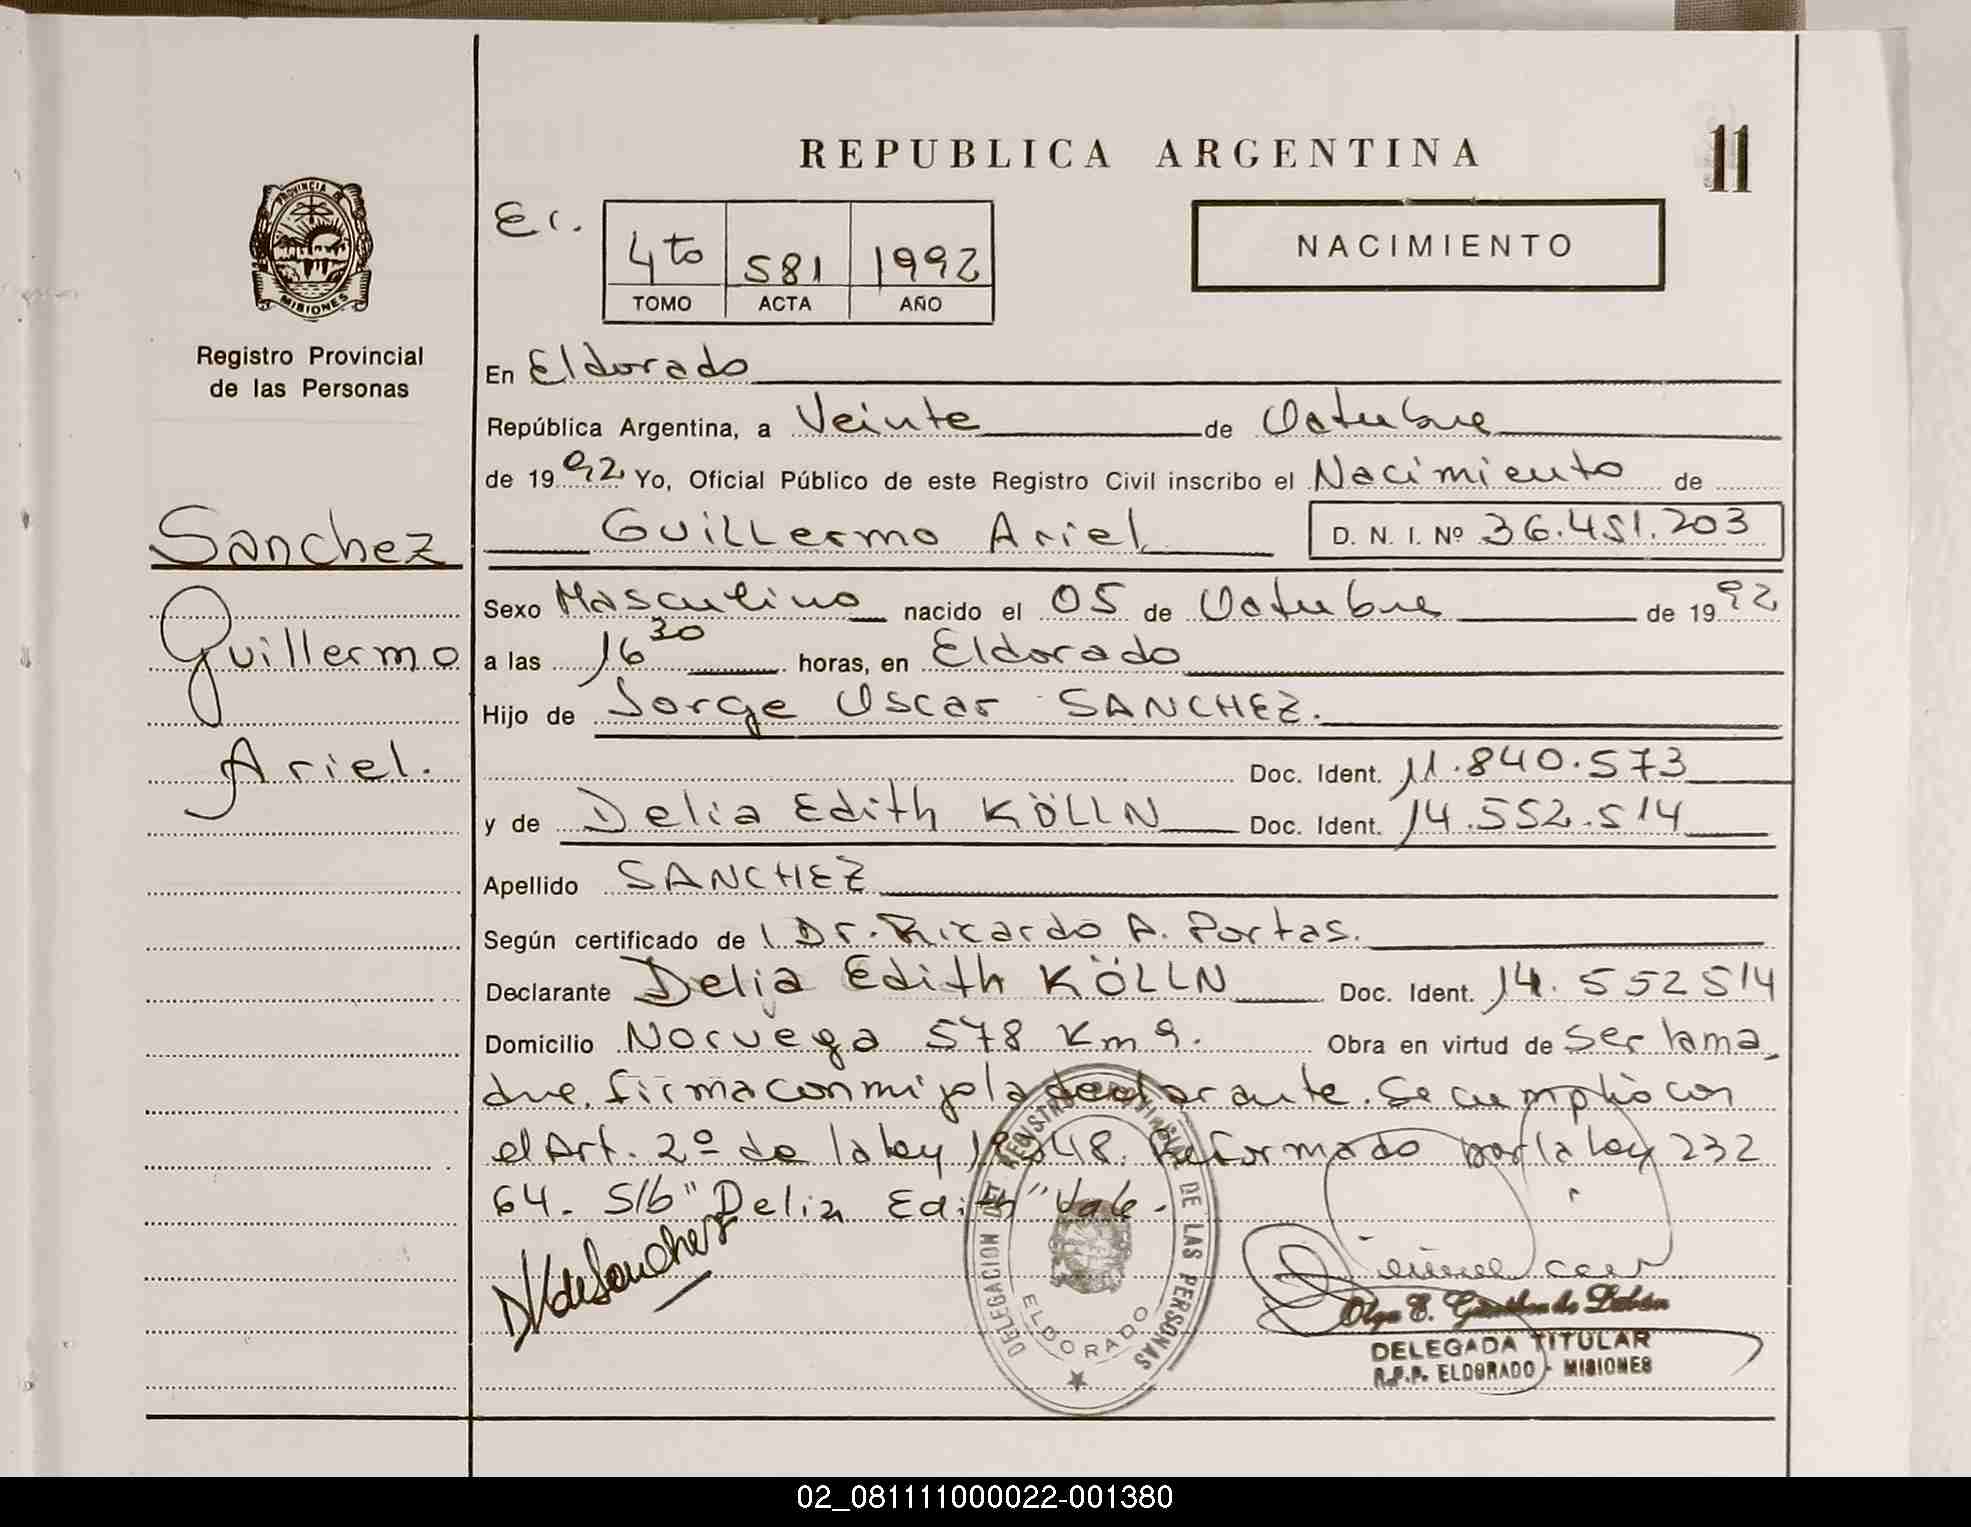 REPUBLICA ARGENTINA
11
PROVINCIA DE
MISIONES
Registro Provincial
de las Personas
Ei.
4to 581 1992
TOMO ACTA AÑO
NACIMIENTO
Sanchez
Guillermo
Ariel.
En Eldorado
República Argentina, a Veinte de Octubre
de 1992 Yo, Oficial Público de este Registro Civil inscribo el Nacimiento de
Guillermo Ariel D. N. I. Nº 36.451.203
Sexo Masculino nacido el 05 de Octubre de 1992
a las 16 30 horas, en Eldorado
Hijo de Jorge Oscar SANCHEZ.
Doc. Ident. 11.840.573
y de Delia Edith KÖLLN Doc. Ident. 14.552.514
Apellido SANCHEZ
Según certificado de l Dr. Ricardo A. Portas.
Declarante Delia Edith KÖLLN Doc. Ident. 14.552514
Domicilio Noruega 578 Km 9. Obra en virtud de ser la ma
dre. firma con migo la declarante. Se cumplió con
el Art. 2º de la ley 18248. Reformado por la ley 232
64. S/b "Delia Edith" Vale.
DKdeSanchez
DELEGACION DEL REGISTRO PROVINCIAL DE LAS PERSONAS
ELDORADO
Olga E. de
DELEGADA TITULAR
R.P.P. ELDORADO - MISIONES
02_081111000022-001380